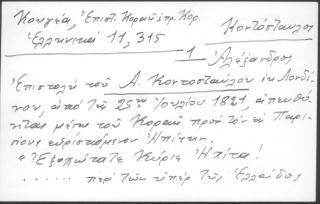 Κουγέα, Ἐπιστ. Κοραῆ πρ. Κορ. Κοντόσταυλος
Ἑλληνικά 11, 315
1 Ἀλέξανδρος
Ἐπιστολή τοῦ Α. Κοντοσταύλου ἐκ Λονδί-
νου, ἀπό τῆς 25ης Ἰουλίου 1821, ἀπευθυ-
νομένη μέσω τοῦ Κοραῆ πρός τόν ἐν Παρι-
σίοις εὑρισκόμενον Ἠπίτην.
"Ἐξοχώτατε Κύριε Ἠπίτα!
...... περί τῶν ὑπέρ τῆς Ἑλλάδος